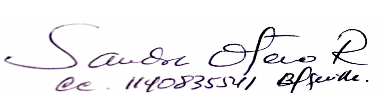 Sandra Otero R
cc. 1140835541 B/quilla.